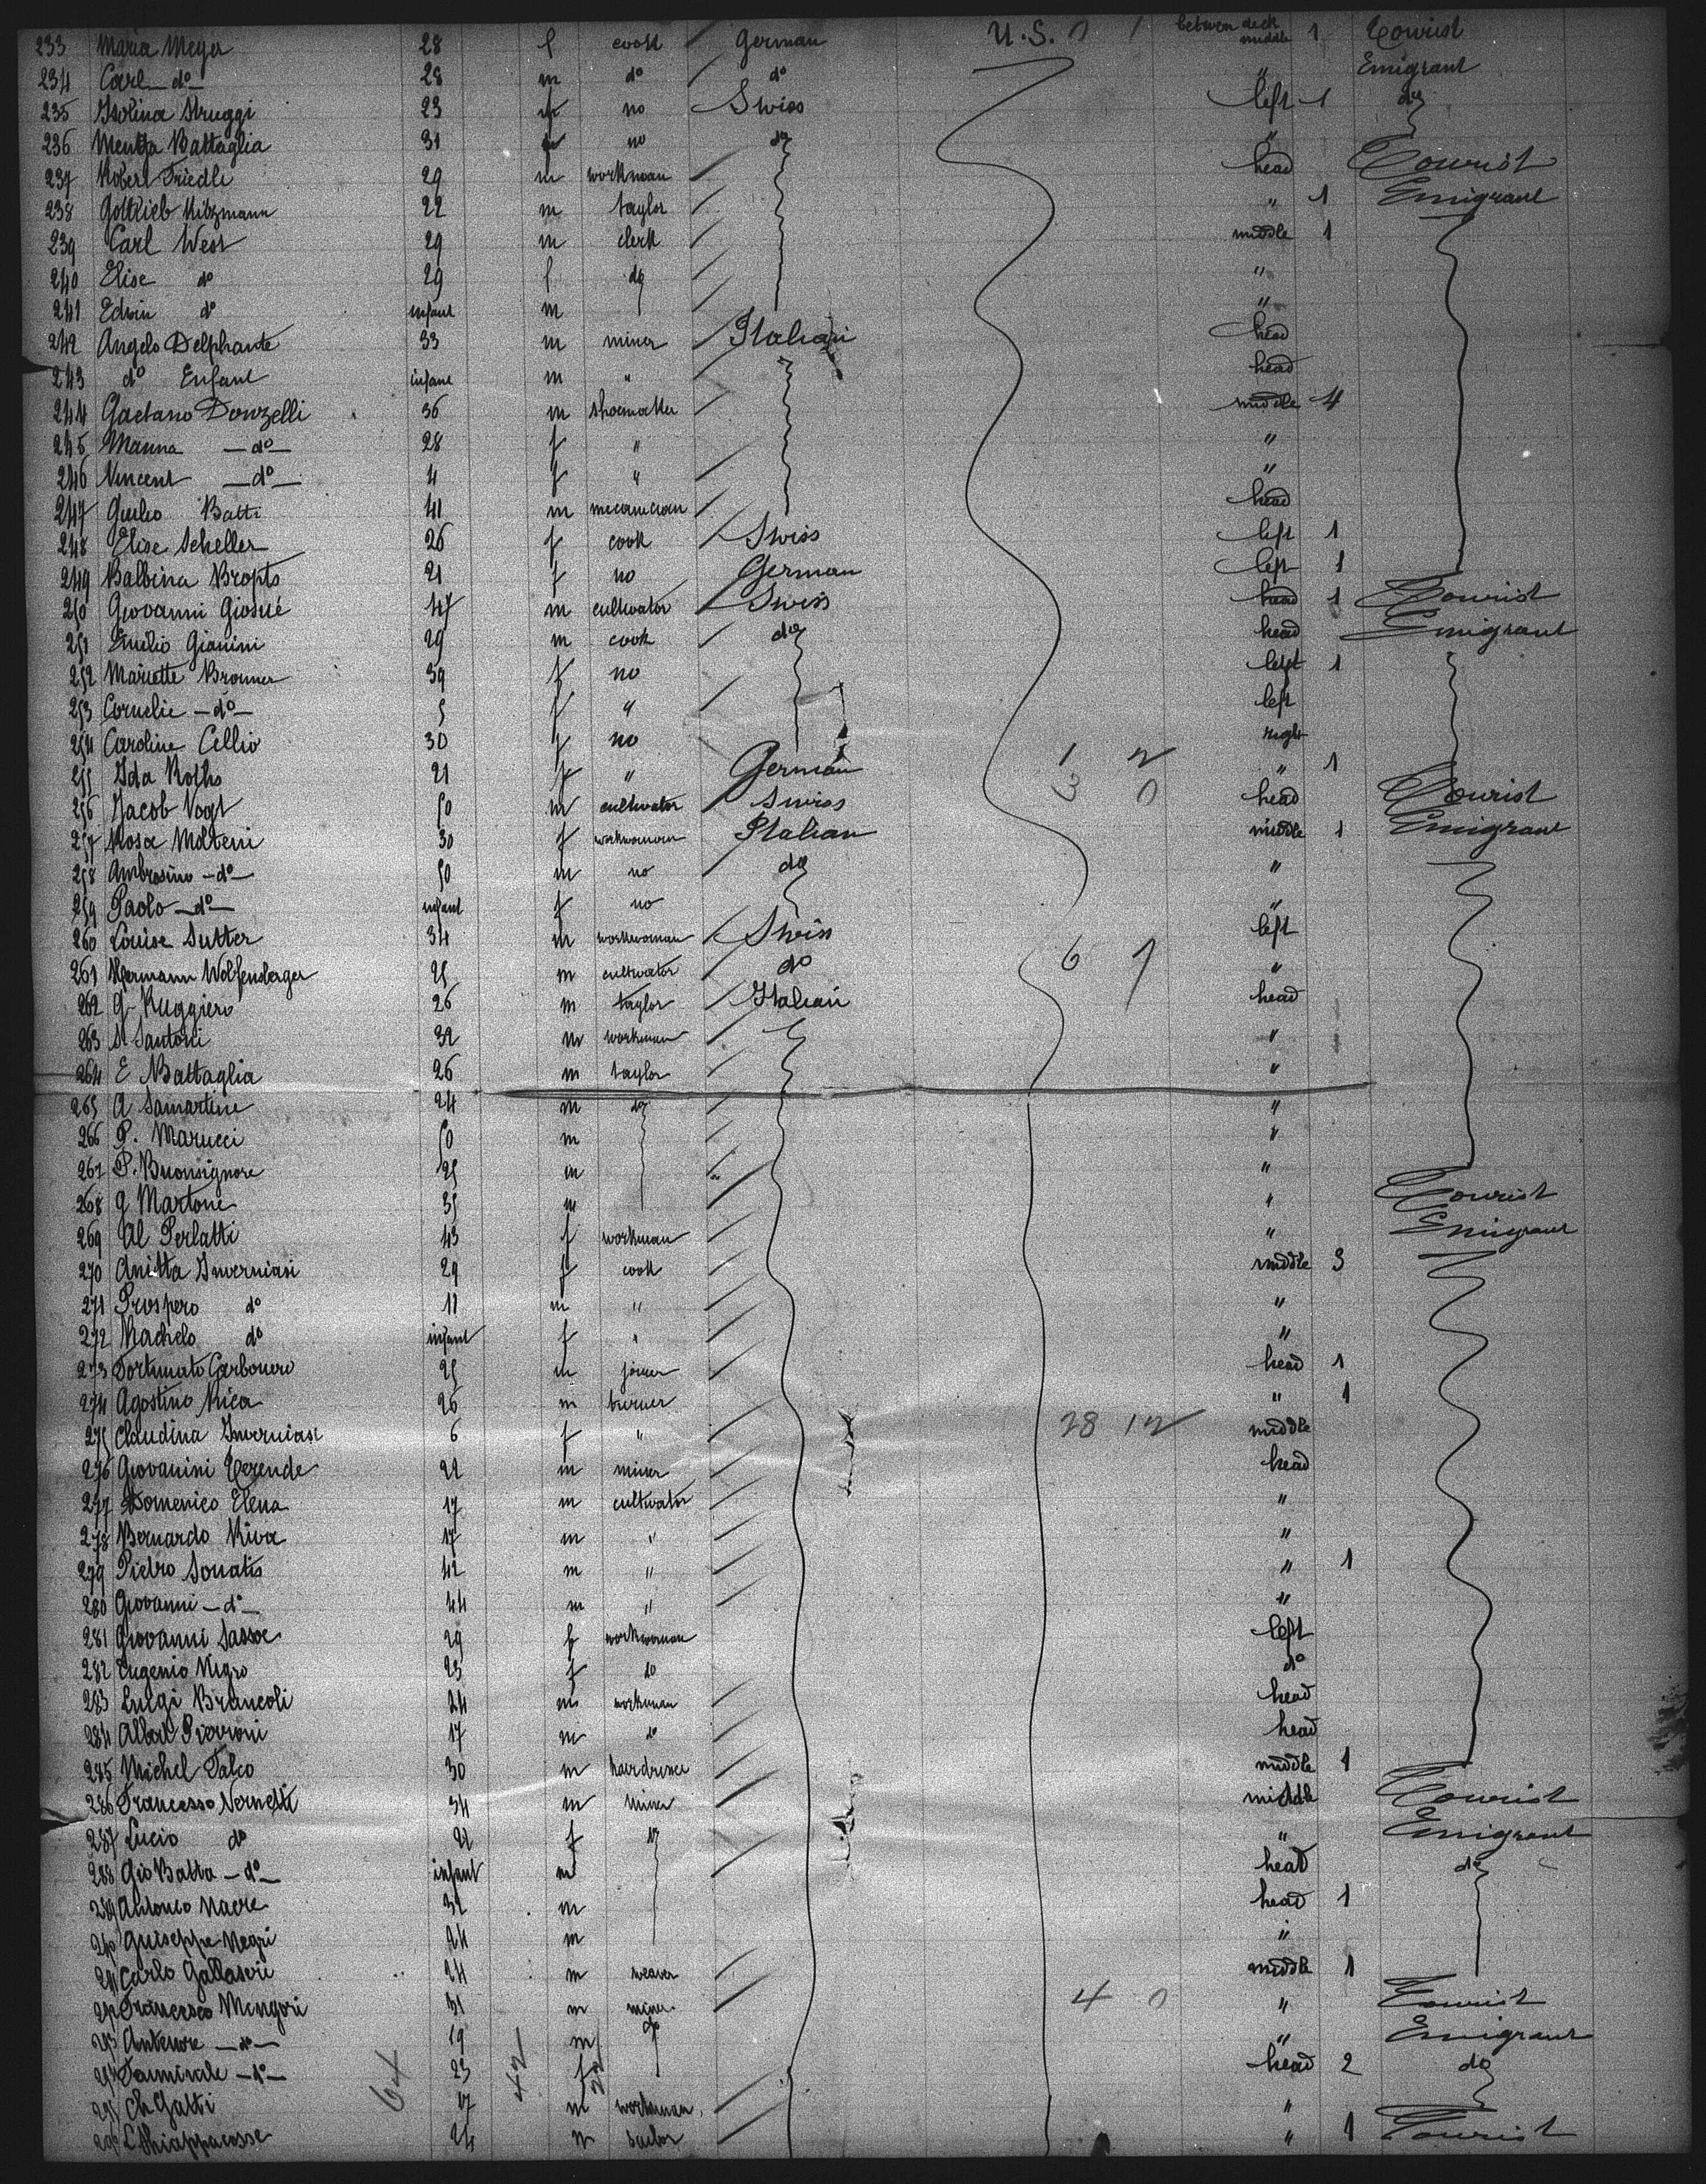 233 Maria Meyer 28 f cook German U.S. 0 1 between deck middle 1 Tourist
234 Carl do 28 m do do " Emigrant
235 Isolina Struggi 23 f no Swiss left 1 do
236 Battaglia 31 f no do "
237 Robert Friedli 29 m workman head Tourist
238 Gottlieb 22 m taylor " 1 Emigrant
239 Carl West 29 m clerk middle 1
240 Elise do 29 f do "
241 Edwin do infant m "
242 Angelo Delphante 33 m miner Italian head
243 do Enfant infant m " head
244 Gaetano Donzelli 36 m shoemaker middle 4
245 Manna do 28 f " "
246 Vincent do 4 f " "
247 Giulio Batti 41 m mecanician head
248 Elise Scheller 26 f cook Swiss left 1
249 Balbina Bropts 21 f no German left 1
250 Giovanni Giosué 47 m cultivator Swiss head 1 Tourist
251 Emilio Gianini 29 m cook do head Emigrant
252 Mariette Bronner 39 f no left 1
253 Cornelie do 5 f " left
254 Caroline Cellio 30 f no right
255 Ida Roths 21 f " German 1 2 " 1
256 Jacob Vogt 50 m cultivator Swiss 3 0 head Tourist
257 Rosa Molteni 30 f workwoman Italian middle 1 Emigrant
258 Ambrosino do 50 m no do "
259 Paolo do infant f no "
260 Louise Sutter 34 m workwoman Swiss left
261 Hermann Wolfensberger 25 m cultivator do 6 1 "
262 G. Ruggiero 26 m taylor Italian head
263 Santoni 32 m workman "
264 E Battaglia 26 m taylor "
265 A Samartine 24 m do "
266 P. Marucci 50 m "
267 P. Buonsignore 25 m "
268 G Martone 35 m " Tourist
269 Al Perlatti 43 f workman " Emigrant
270 Anitta Inverniasi 29 f cook middle 3
271 Prospero do 11 m " "
272 Rachelo do infant f " "
273 Fortunato Carbonero 25 m joiner head 1
274 Agostino Rica 26 m turner " 1
275 Claudina Inverniasi 6 f " 28 12 middle
276 Giovanini Terende 22 m miner head
277 Domenico Elena 17 m cultivator "
278 Bernardo Riva 17 m " "
279 Pietro Sonatis 42 m " " 1
280 Giovanni do 44 m " "
281 Giovanni Sassoe 29 f workwoman left
282 Eugenio Nigro 23 f do do
283 Luigi Brancoli 24 m workman head
284 Albert Pieroni 17 m do head
285 Michel Falco 30 m hairdresser middle 1
286 Francesso Nernetti 34 m miner middle Tourist
287 Lucio do 22 f do " Emigrant
288 Gio Batta do infant m head do
289 Antonio 32 m head 1
290 Guiseppe Negri 24 m "
291 Carlo 24 m weaver middle 1
292 Francesco Mengori 31 m miner 4 0 " Tourist
293 Antenore do 19 m do " Emigrant
294 do 23 f head 2 do
295 Ch Gatti 17 m workman "
296 Chiappacosse 24 m sailor " 1 Tourist
64 42 22